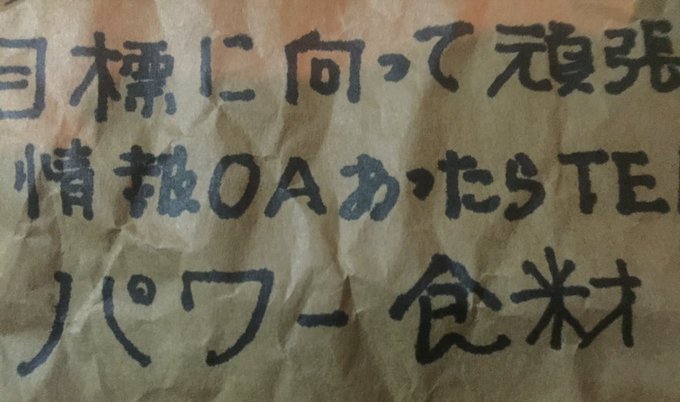 目標に向って頑張
情報OAあったらTEL
パワー食材